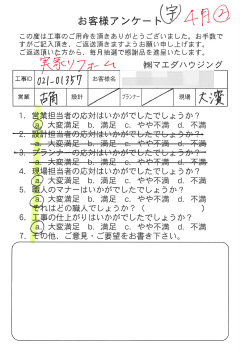 お客様アンケート ㊫ 4月②
この度は工事のご用命を頂きありがとうございました。お手数で
すがご記入頂き、ご返送頂きますようお願い申し上げます。
ご返送頂いた方から、毎月抽選で感謝品を進呈いたします。
実家リフォーム ㈱マエダハウジング
工事ID 021-01357 お客様名
営業 設計 プランナー 現場 大濱
1. 営業担当者の応対はいかがでしたでしょうか?
a. 大変満足 b. 満足 c. やや不満 d. 不満
2. 設計担当者の応対はいかがでしたでしょうか?
a. 大変満足 b. 満足 c. やや不満 d. 不満
3. プランナーの応対はいかがでしたでしょうか?
a. 大変満足 b. 満足 c. やや不満 d. 不満
4. 現場担当者の応対はいかがでしたでしょうか?
a. 大変満足 b. 満足 c. やや不満 d. 不満
5. 職人のマナーはいかがでしたでしょうか?
a. 大変満足 b. 満足 c. やや不満 d. 不満
それはどの職人でしょうか?( )
6. 工事の仕上がりはいかがでしたでしょうか?
a. 大変満足 b. 満足 c. やや不満 d. 不満
7. その他、ご意見・ご要望をお書き下さい。